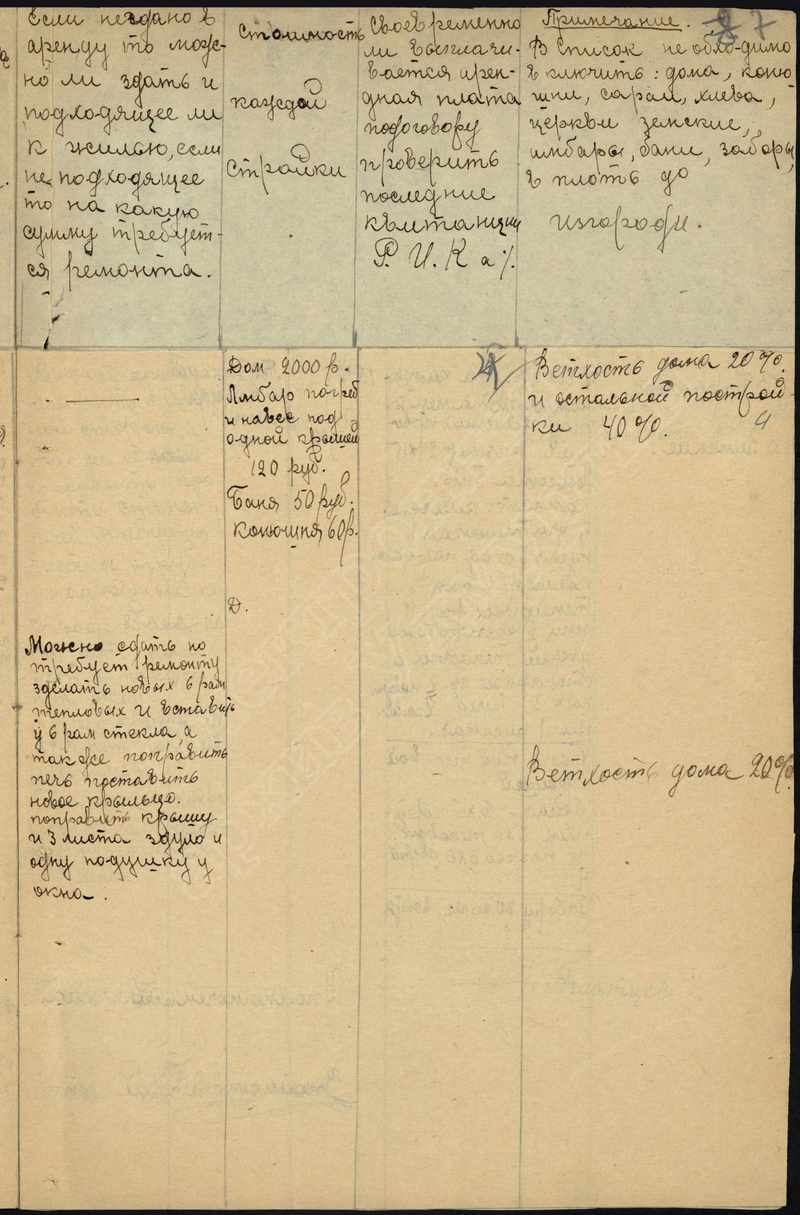 Если не здано в
аренду то мож-
но ли здать и
подходящее ли
к жилью, если
не подходящее
то на какую
сумму требует-
ся ремонта.
Стоимость
каждой
стройки
Своевременно
ли выплачи-
вается арен-
дная плата
подоговору
проверить
последние
квитанции
Р. И. К а %
Примечание. 7
В список необходимо
включить: дома, коню
шни, сараи, хлева,
церкви земские,
амбары, бани, заборы,
в плоть до
изгороди.
Дом 2000 р.
Амбар погреб
и навес под
одной крышей
120 руб.
Баня 50 руб.
конюшня 60 р.
Ветхость дома 20%.
и остальной построй-
ки 40%.
Д.
Можно сдать но
требует ремонту
зделать новых 6 рам
тепловых и вставить
у 6 рам стекла, а
также поправить
печь поставить
новое крыльцо.
поправить крышу
и 3 листа здуло и
одну подушку у
окна.
Ветхость дома 20%